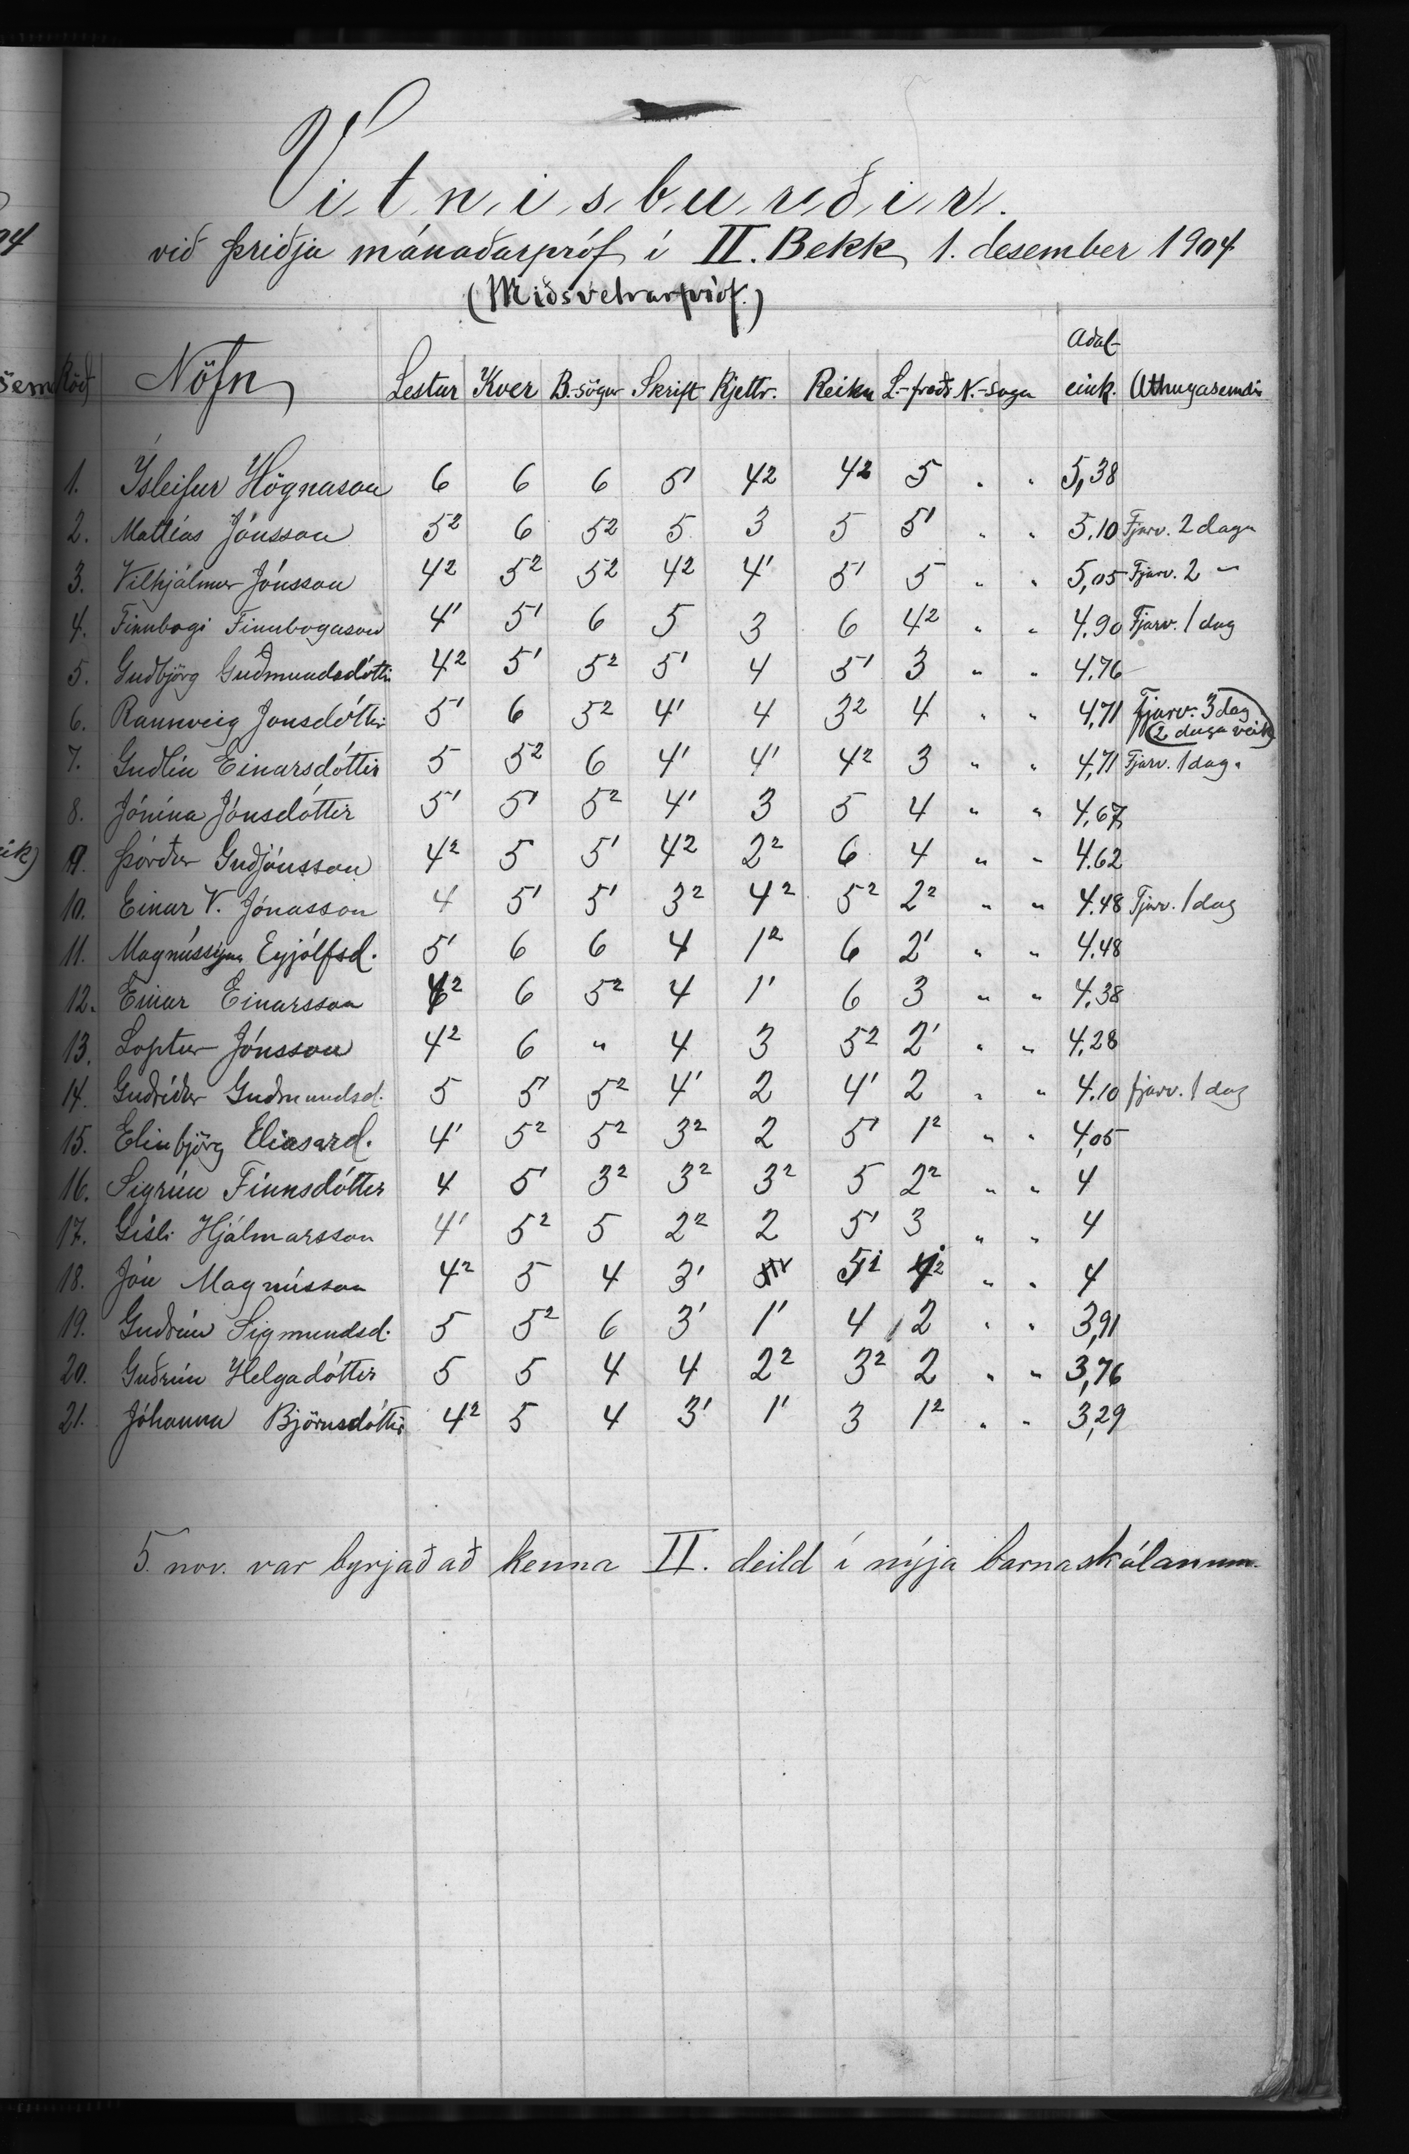 Vitnisburðir.
við þriðja mánaðarpróf í II. Bekk, 1. desember 1904
(Miðsvetrarpróf.)
Röð Nöfn Lestur Kver B.-sögur Skrift Rjettr. Reikn L.-fræði N.-saga Aðal-eink. Athugasemdir
1. Ísleifur Högnason 6 6 6 5¹ 4² 4² 5 " " 5,38
2. Mattías Jónsson 5² 6 5² 5 3 5 5¹ " " 5.10 Fjarv. 2 daga
3. Vilhjálmur Jónsson 4² 5² 5² 4² 4¹ 5¹ 5 " " 5,05 Fjarv. 2 –
4. Finnbogi Finnbogason 4¹ 5¹ 6 5 3 6 4² " " 4.90 Fjarv. 1 dag
5. Guðbjörg Guðmundsdóttir 4² 5¹ 5² 5¹ 4 5¹ 3 " " 4.76
6. Rannveig Jonsdóttir 5¹ 6 5² 4¹ 4 3² 4 " " 4,71 Fjarv. 3 dag (2 daga veik)
7. Guðlín Einarsdóttir 5 5² 6 4¹ 4¹ 4² 3 " " 4,71 Fjarv. 1 dag.
8. Jónína Jónsdóttir 5¹ 5¹ 5² 4¹ 3 5 4 " " 4.67
9. Þórður Guðjónsson 4² 5 5¹ 4² 2² 6 4 " " 4.62
10. Einar V. Jónasson 4 5¹ 5¹ 3² 4² 5² 2² " " 4.48 Fjarv. 1 dag
11. Magnússína Eyjólfsd. 5¹ 6 6 4 1² 6 2¹ " " 4.48
12. Einar Einarsson 4² 6 5² 4 1¹ 6 3 " " 4.38
13. Loptur Jónsson 4² 6 " 4 3 5² 2¹ " " 4.28
14. Guðríður Guðmundsd. 5 5¹ 5² 4¹ 2 4¹ 2 " " 4.10 fjarv. 1 dag
15. Elinbjörg Eliasard. 4¹ 5² 5² 3² 2 5¹ 1² " " 4,05
16. Sigrún Finnsdóttir 4 5¹ 3² 3² 3² 5 2² " " 4
17. Gísli Hjálmarsson 4¹ 5² 5 2² 2 5¹ 3 " " 4
18. Jón Magnússon 4² 5 4 3¹ 5¹ " " 4
19. Guðrún Sigmundsd. 5 5² 6 3¹ 1¹ 4 2 " " 3,91
20. Guðrún Helgadóttir 5 5 4 4 2² 3² 2 " " 3,76
21. Jóhanna Björnsdóttir 4² 5 4 3¹ 1¹ 3 1² " " 3,29
5. nov. var byrjað að kenna II. deild í nýja barnaskólanum.